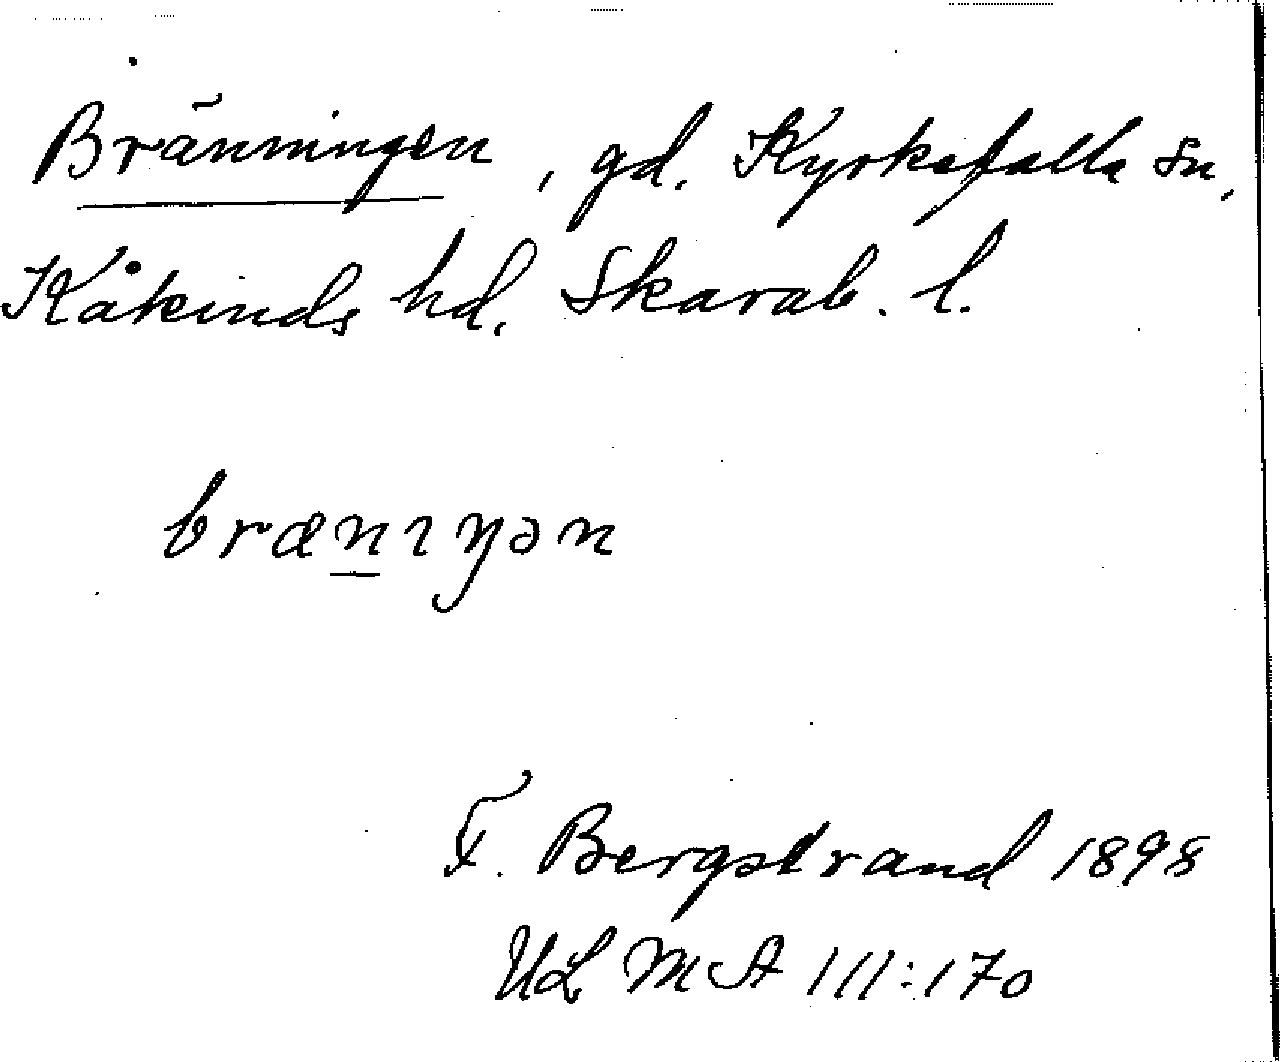 Bränningen, gd. Kyrkefalla sn,
Kåkinds hd. Skarab. l.
bræn̲ıŋən
F. Bergstrand 1898
ULMA 111:170